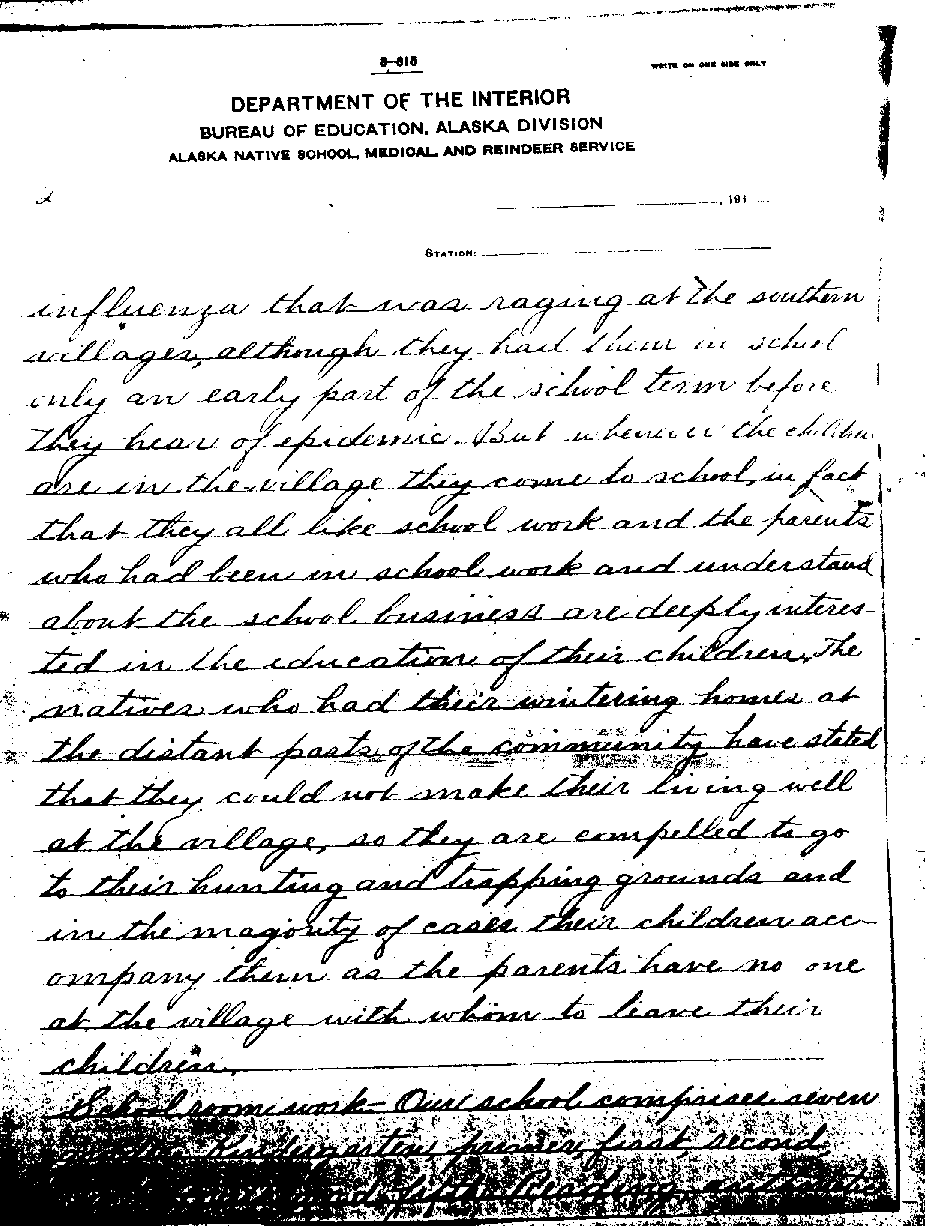 8-615
WRITE ON ONE SIDE ONLY
DEPARTMENT OF THE INTERIOR
BUREAU OF EDUCATION, ALASKA DIVISION
ALASKA NATIVE SCHOOL, MEDICAL, AND REINDEER SERVICE
2
, 191
STATION:
influenza that was raging at the southern
villages, although they had them in school
only an early part of the school term before
they hear of epidemic. But whenever the children
are in the village they come to school, in fact
that they all like school work and the parents
who had been in school work and understand
about the school business are deeply interes-
ted in the education of their children. The
natives who had their wintering homes at
the distant parts of the community have stated
that they could not make their living well
at the village, so they are compelled to go
to their hunting and trapping grounds and
in the magority of cases their children acc-
ompany them as the parents have no one
at the village with whom to leave their
children.
School room work - Our school comprises seven
Kindergarten, primer, first, second
and fifth. Reading, arithmetic